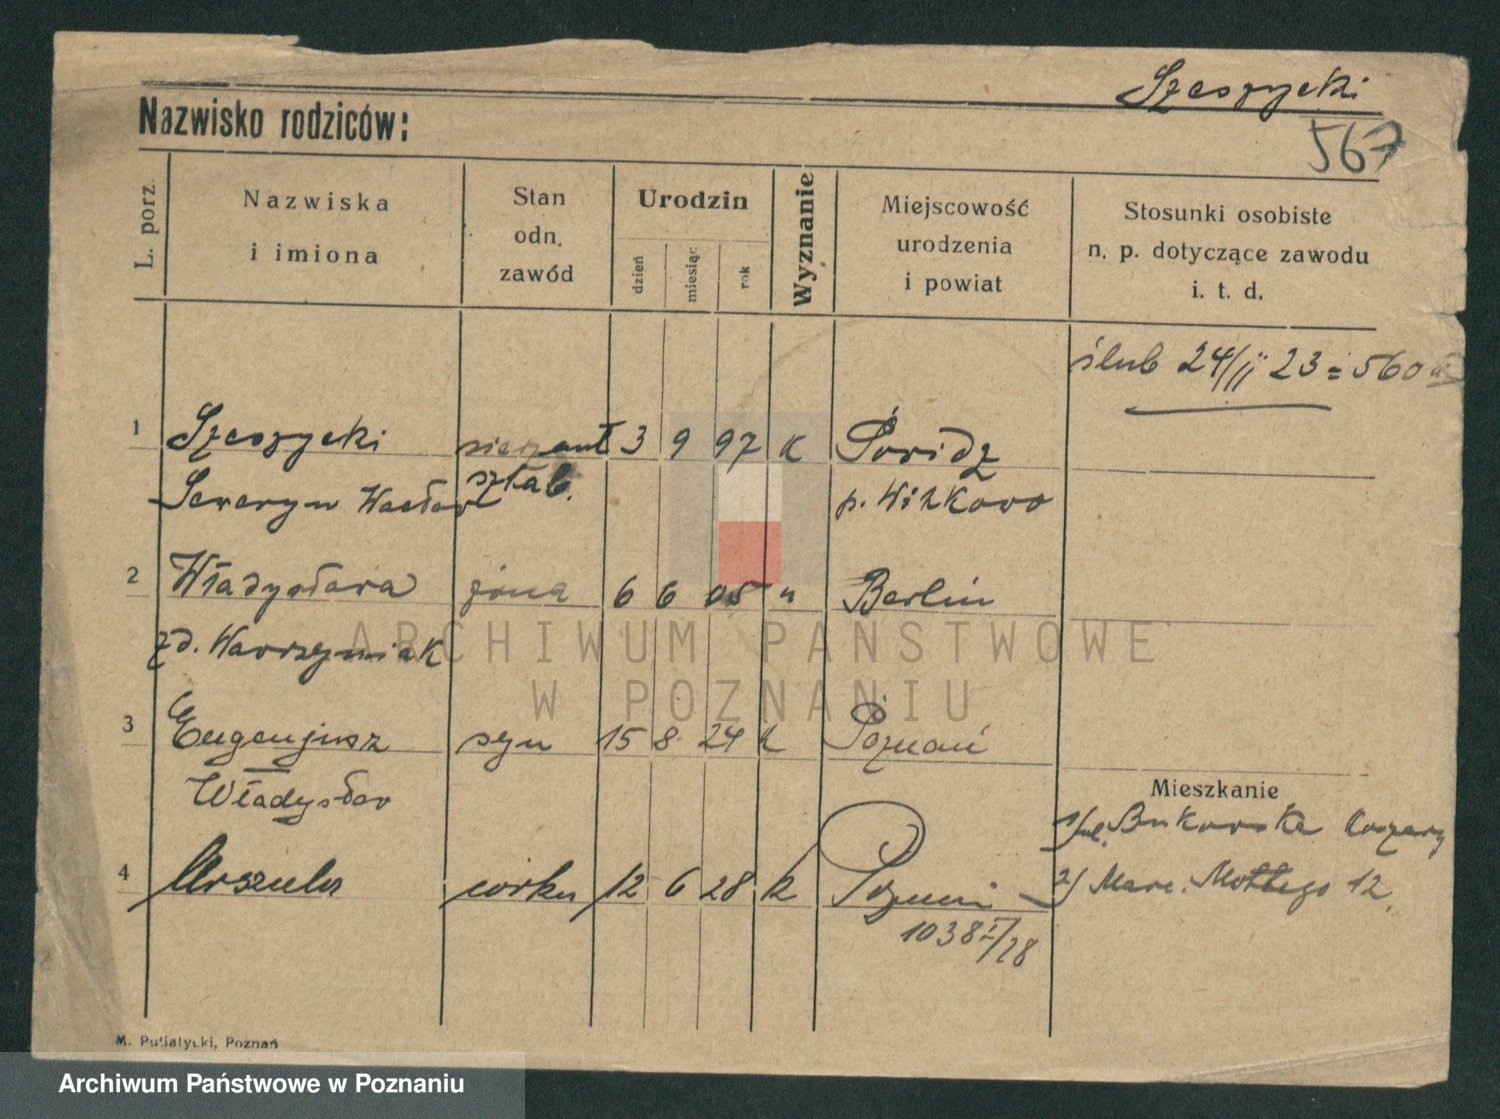 Szeszycki
Nazwisko rodziców:
567
L. porz.
Nazwiska
i imiona
Stan
odn.
zawód
Urodzin
dzień
miesiąc
rok
Wyznanie
Miejscowość
urodzenia
i powiat
Stosunki osobiste
n. p. dotyczące zawodu
i. t. d.
ślub 24/II 23 = 560
1 Szeszycki sierżant 3 9 97 K
Seweryn Wacław sztab. p. Witkowo
2 Władysława żona 6 6 05 " Berlin
z d. Wawrzyniak
ARCHIWUM PAŃSTWOWE
W POZNANIU
3 Eugenjusz syn 15 8 24 k Poznań
Władysław
Mieszkanie
1/ ul. Bukowska Koszary
4 Urszula córka 12 6 28 k Poznań
2/ Marc. Mottego 12.
1038 I/28
M. Putiatycki, Poznań
Archiwum Państwowe w Poznaniu